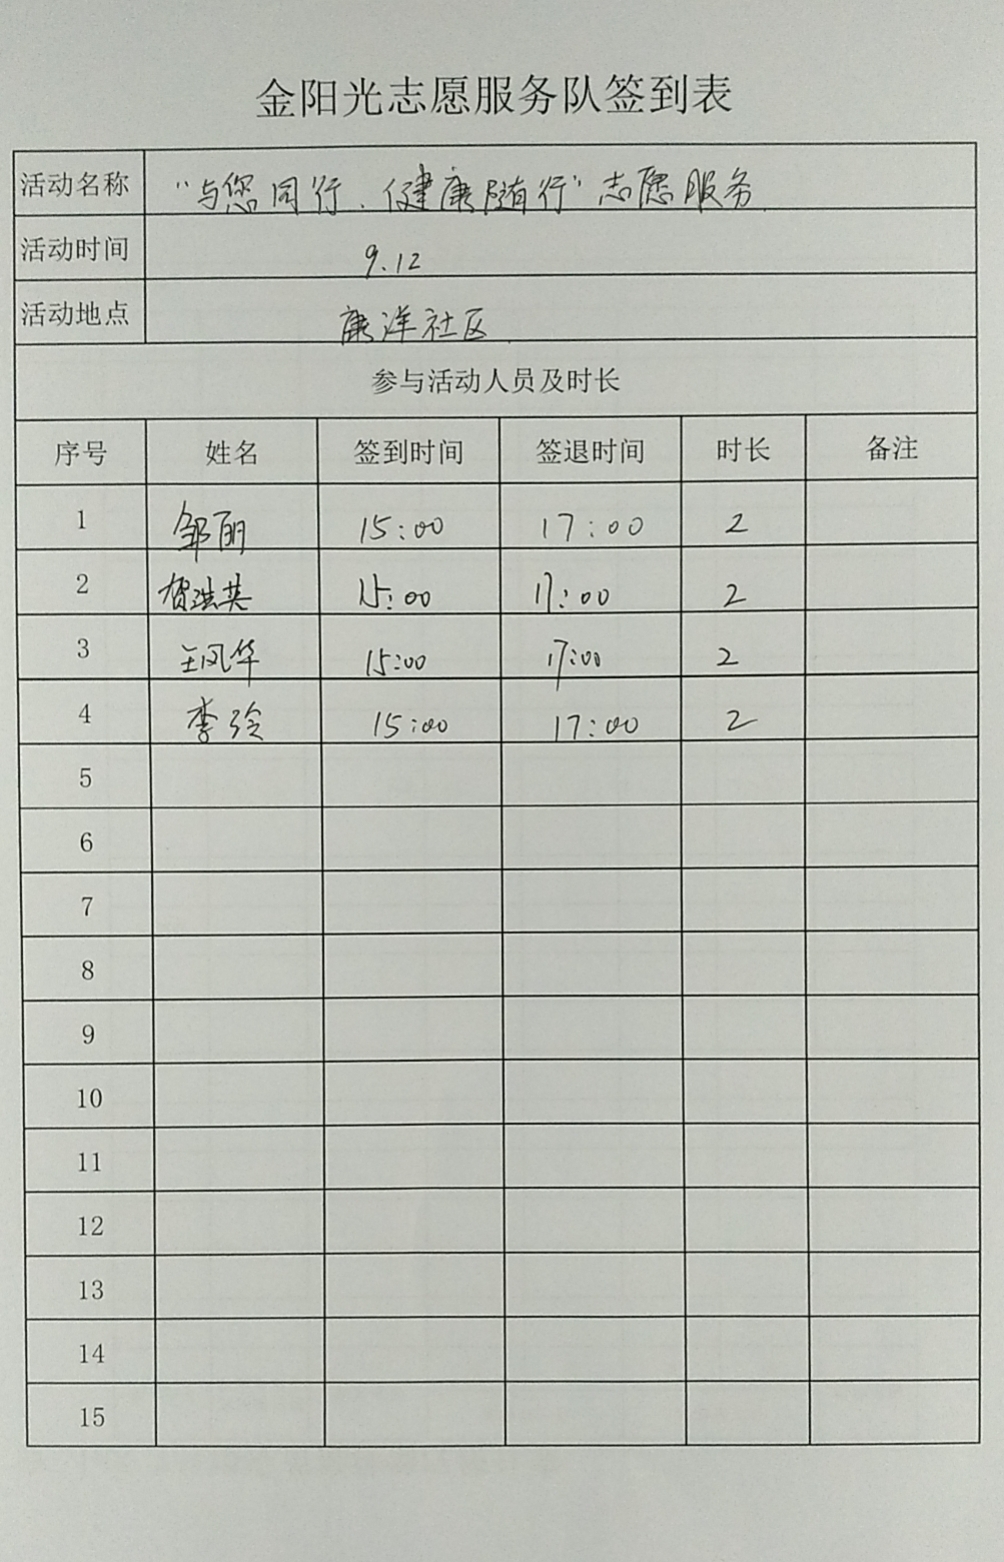 金阳光志愿服务队签到表
活动名称 “与您同行、健康随行”志愿服务
活动时间 9.12
活动地点 康洋社区
参与活动人员及时长
序号 姓名 签到时间 签退时间 时长 备注
1 邹丽 15:00 17:00 2
2 贺浩英 15:00 17:00 2
3 王凤华 15:00 17:00 2
4 李玲 15:00 17:00 2
5
6
7
8
9
10
11
12
13
14
15